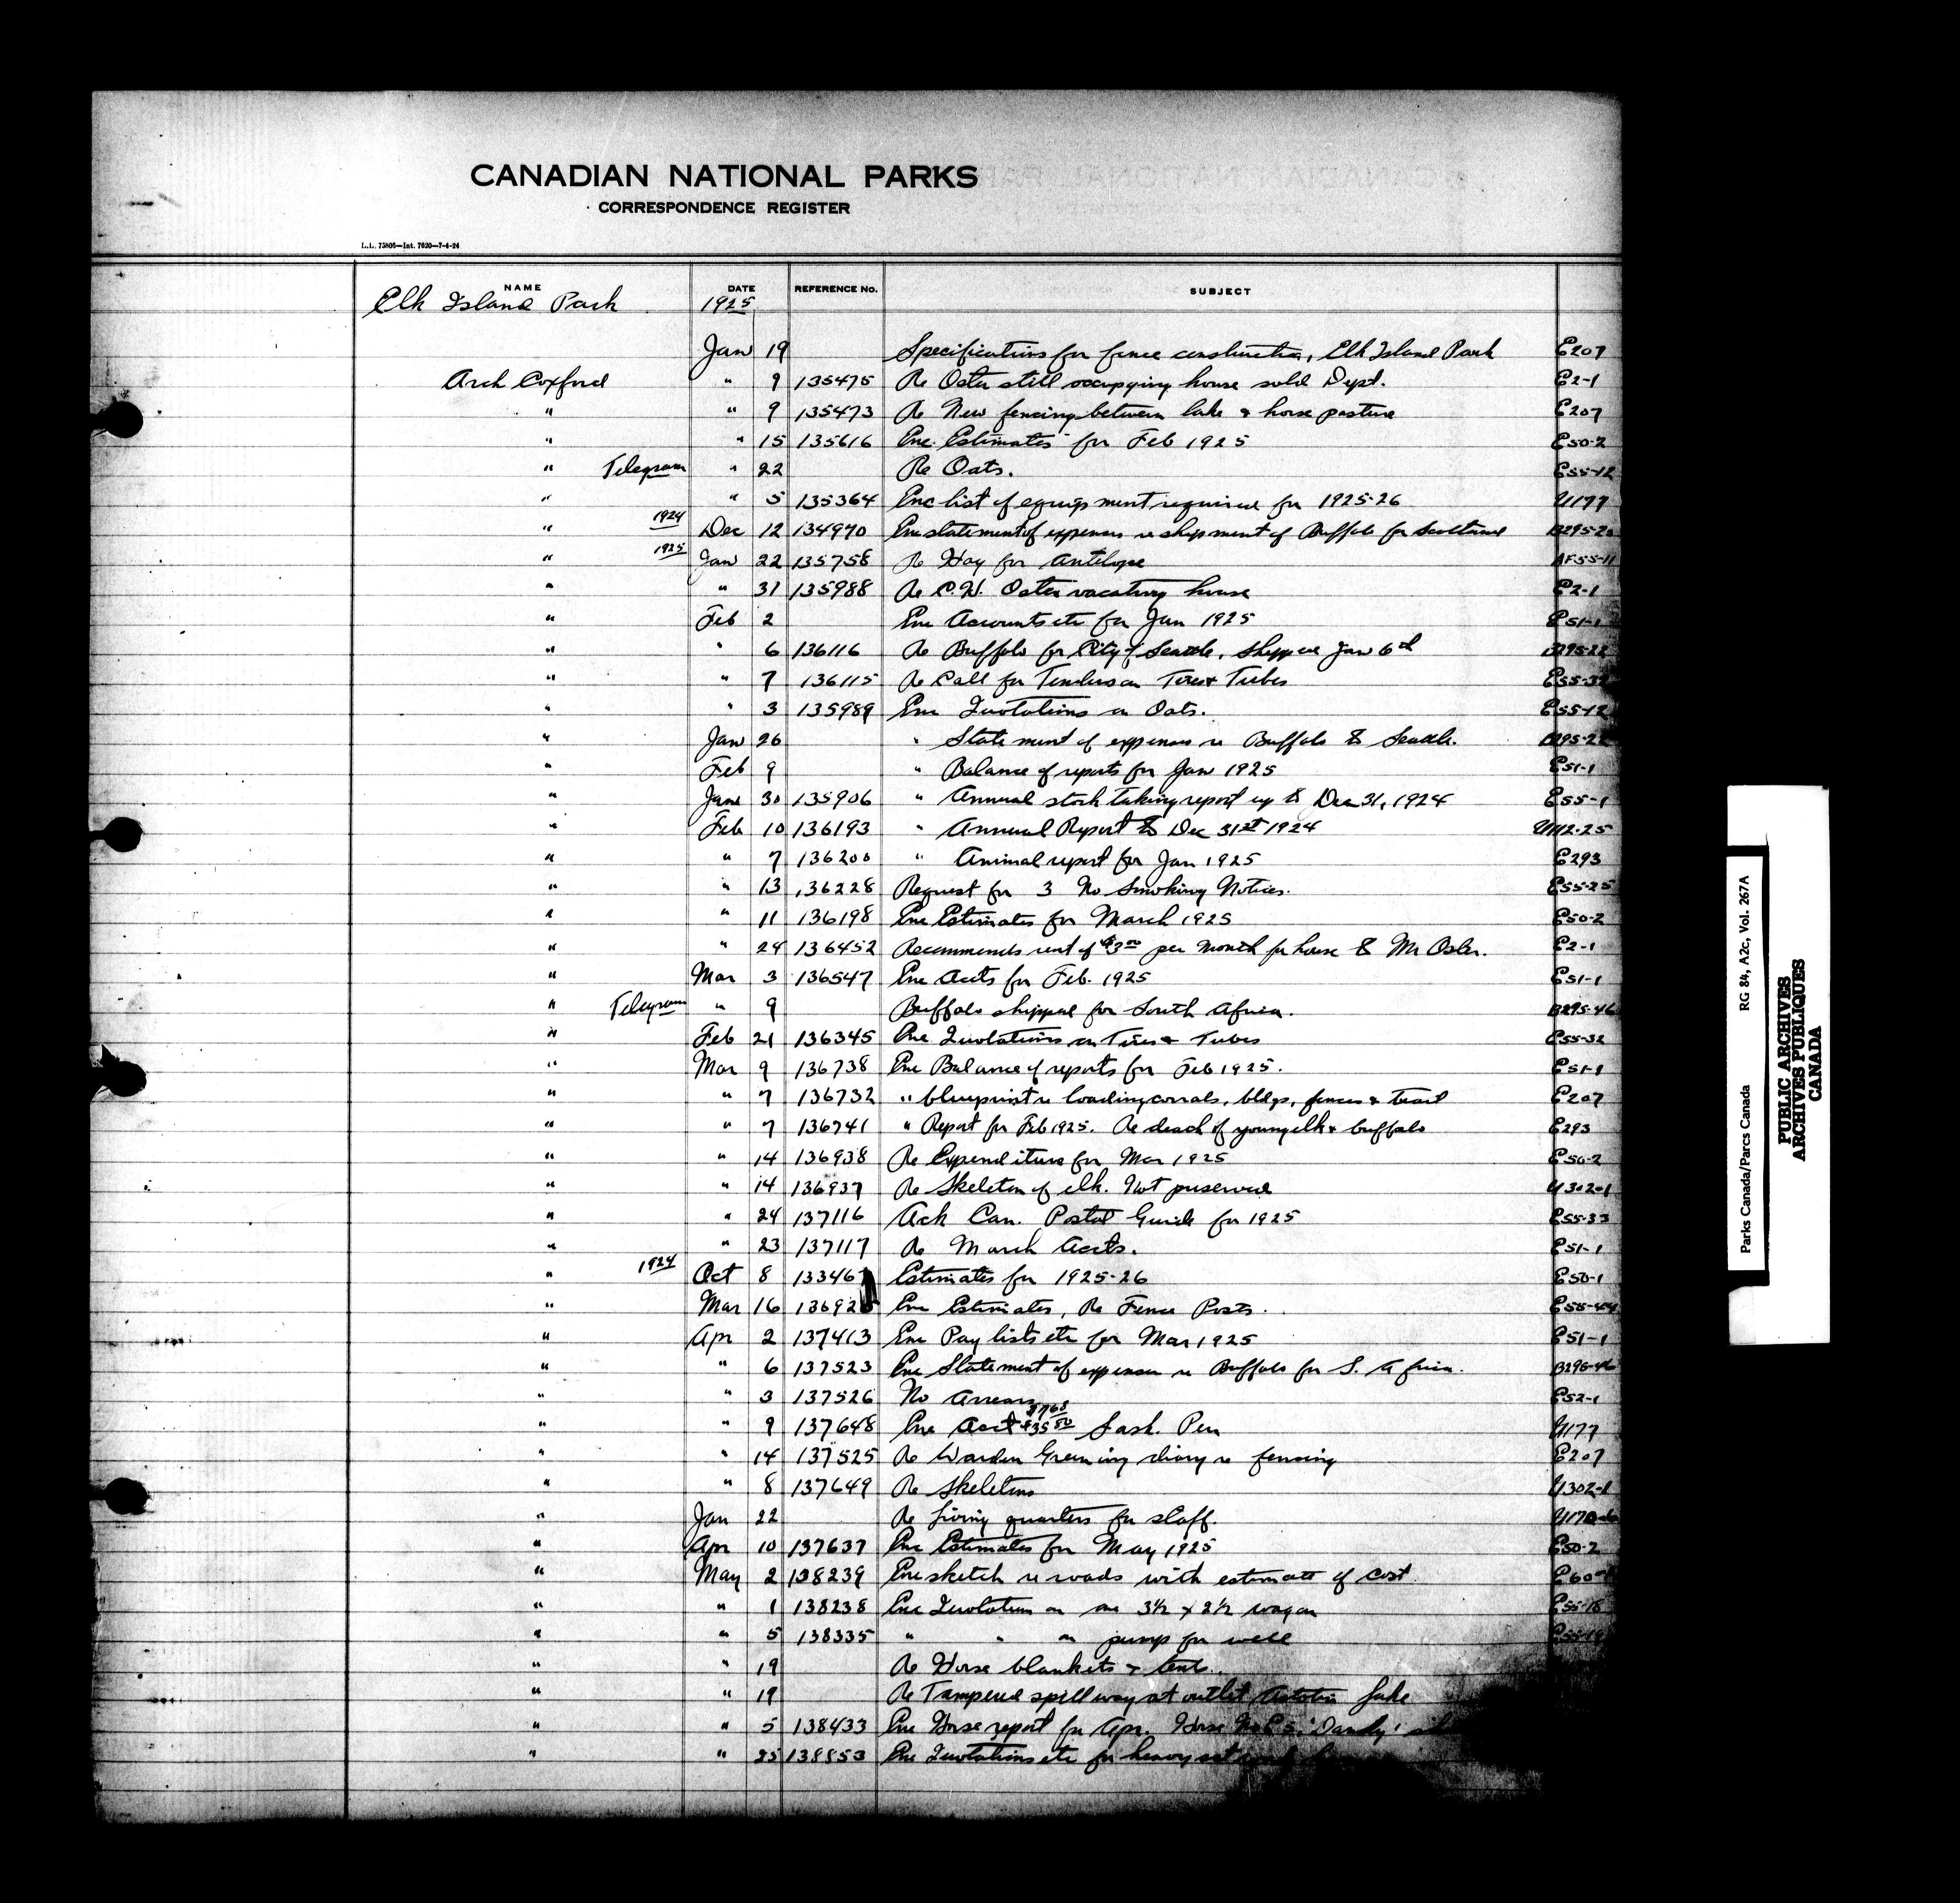 CANADIAN NATIONAL PARKS
CORRESPONDENCE REGISTER
L.L. 75806—Int. 7620—7-4-24
NAME DATE REFERENCE No. SUBJECT
Elk Island Park 1925
Jan 19 Specifications for fence construction, Elk Island Park E207
Arch Coxford " 9 135475 Re Oster still occupying house sold Dept. E2-1
" " 9 135473 Re New fencing between lake & horse pasture E207
" " 15 135616 Enc. Estimates for Feb 1925 E50-2
" Telegram " 22 Re Oats. E55-12
" " 5 135364 Enc list of equipment required for 1925-26 U177
" 1924 Dec 12 134970 Enc statement of expenses re shipment of Buffalo for Scotland B295-20
" 1925 Jan 22 135758 Re Hay for Antelope AF55-11
" " 31 135988 Re C.W. Oster vacating house E2-1
" Feb 2 Enc Accounts etc for Jan 1925 E51-1
" " 6 136116 Re Buffalo for City of Seattle, Shipped Jan 6th B295-22
" " 7 136115 Re Call for Tenders on Tires & Tubes E55-32
" " 3 135989 Enc Quotations on Oats. E55-12
" Jan 26 " Statement of expenses re Buffalo to Seattle. B295-22
" Feb 9 " Balance of reports for Jan 1925 E51-1
" Jan 30 135906 " Annual stock taking report up to Dec 31, 1924 E55-1
" Feb 10 136193 " Annual Report to Dec 31st 1924 U112-25
" " 7 136200 " Animal report for Jan 1925 E293
" " 13 136228 Request for 3 No Smoking Notices. E55-25
" " 11 136198 Enc Estimates for March 1925 E50-2
" " 24 136452 Recommends rent of $3.00 per month for house to Mr Oster. E2-1
" Mar 3 136547 Enc Accts for Feb. 1925 E51-1
" Telegram " 9 Buffalo shipped for South Africa. B295-46
" Feb 21 136345 Enc Quotations on Tires & Tubes E55-32
" Mar 9 136738 Enc Balance of reports for Feb 1925. E51-1
" " 7 136732 " blueprint re loading corrals, bldgs, fences & trail E207
" " 7 136741 " Report for Feb 1925. Re death of young elk & buffalo E293
" " 14 136938 Re Expenditure for Mar 1925 E50-2
" " 14 136937 Re Skeleton of elk. Not preserved U302-1
" " 24 137116 Ack Can. Postal Guide for 1925 E55-33
" " 23 137117 Re March Accts. E51-1
" 1924 Oct 8 13346 Estimates for 1925-26 E50-1
" Mar 16 13692 Enc Estimates, Re Fence Posts.
" Apr 2 137413 Enc Pay lists etc for Mar 1925 E51-1
" " 6 137523 Enc Statement of expenses re Buffalo for S. Africa. B295-46
" " 3 137526 No Arrears E52-1
" " 9 137648 Enc Acct Sask. Pen U177
" " 14 137525 Re Warden Greening diary re fencing E207
" " 8 137649 Re Skeletons U302-1
" Jan 22 Re Living quarters for staff.
" Apr 10 137637 Enc Estimates for May 1925 E50-2
" May 2 138239 Enc sketch re roads with estimate of cost
" " 1 138238 Enc Quotation on one 3½ x 2½ wagon E55-18
" " 5 138335 " " on pump for well
" " 19 Re Horse blankets & tents.
" " 19 Re Tampered spillway at outlet Astotin Lake
" " 5 138433 Enc Horse report for Apr. Horse No E5. 'Dandy'
" " 25 138853 Enc Quotations etc for heavy
Parks Canada/Parcs Canada RG 84, A2c, Vol. 267A
PUBLIC ARCHIVES
ARCHIVES PUBLIQUES
CANADA